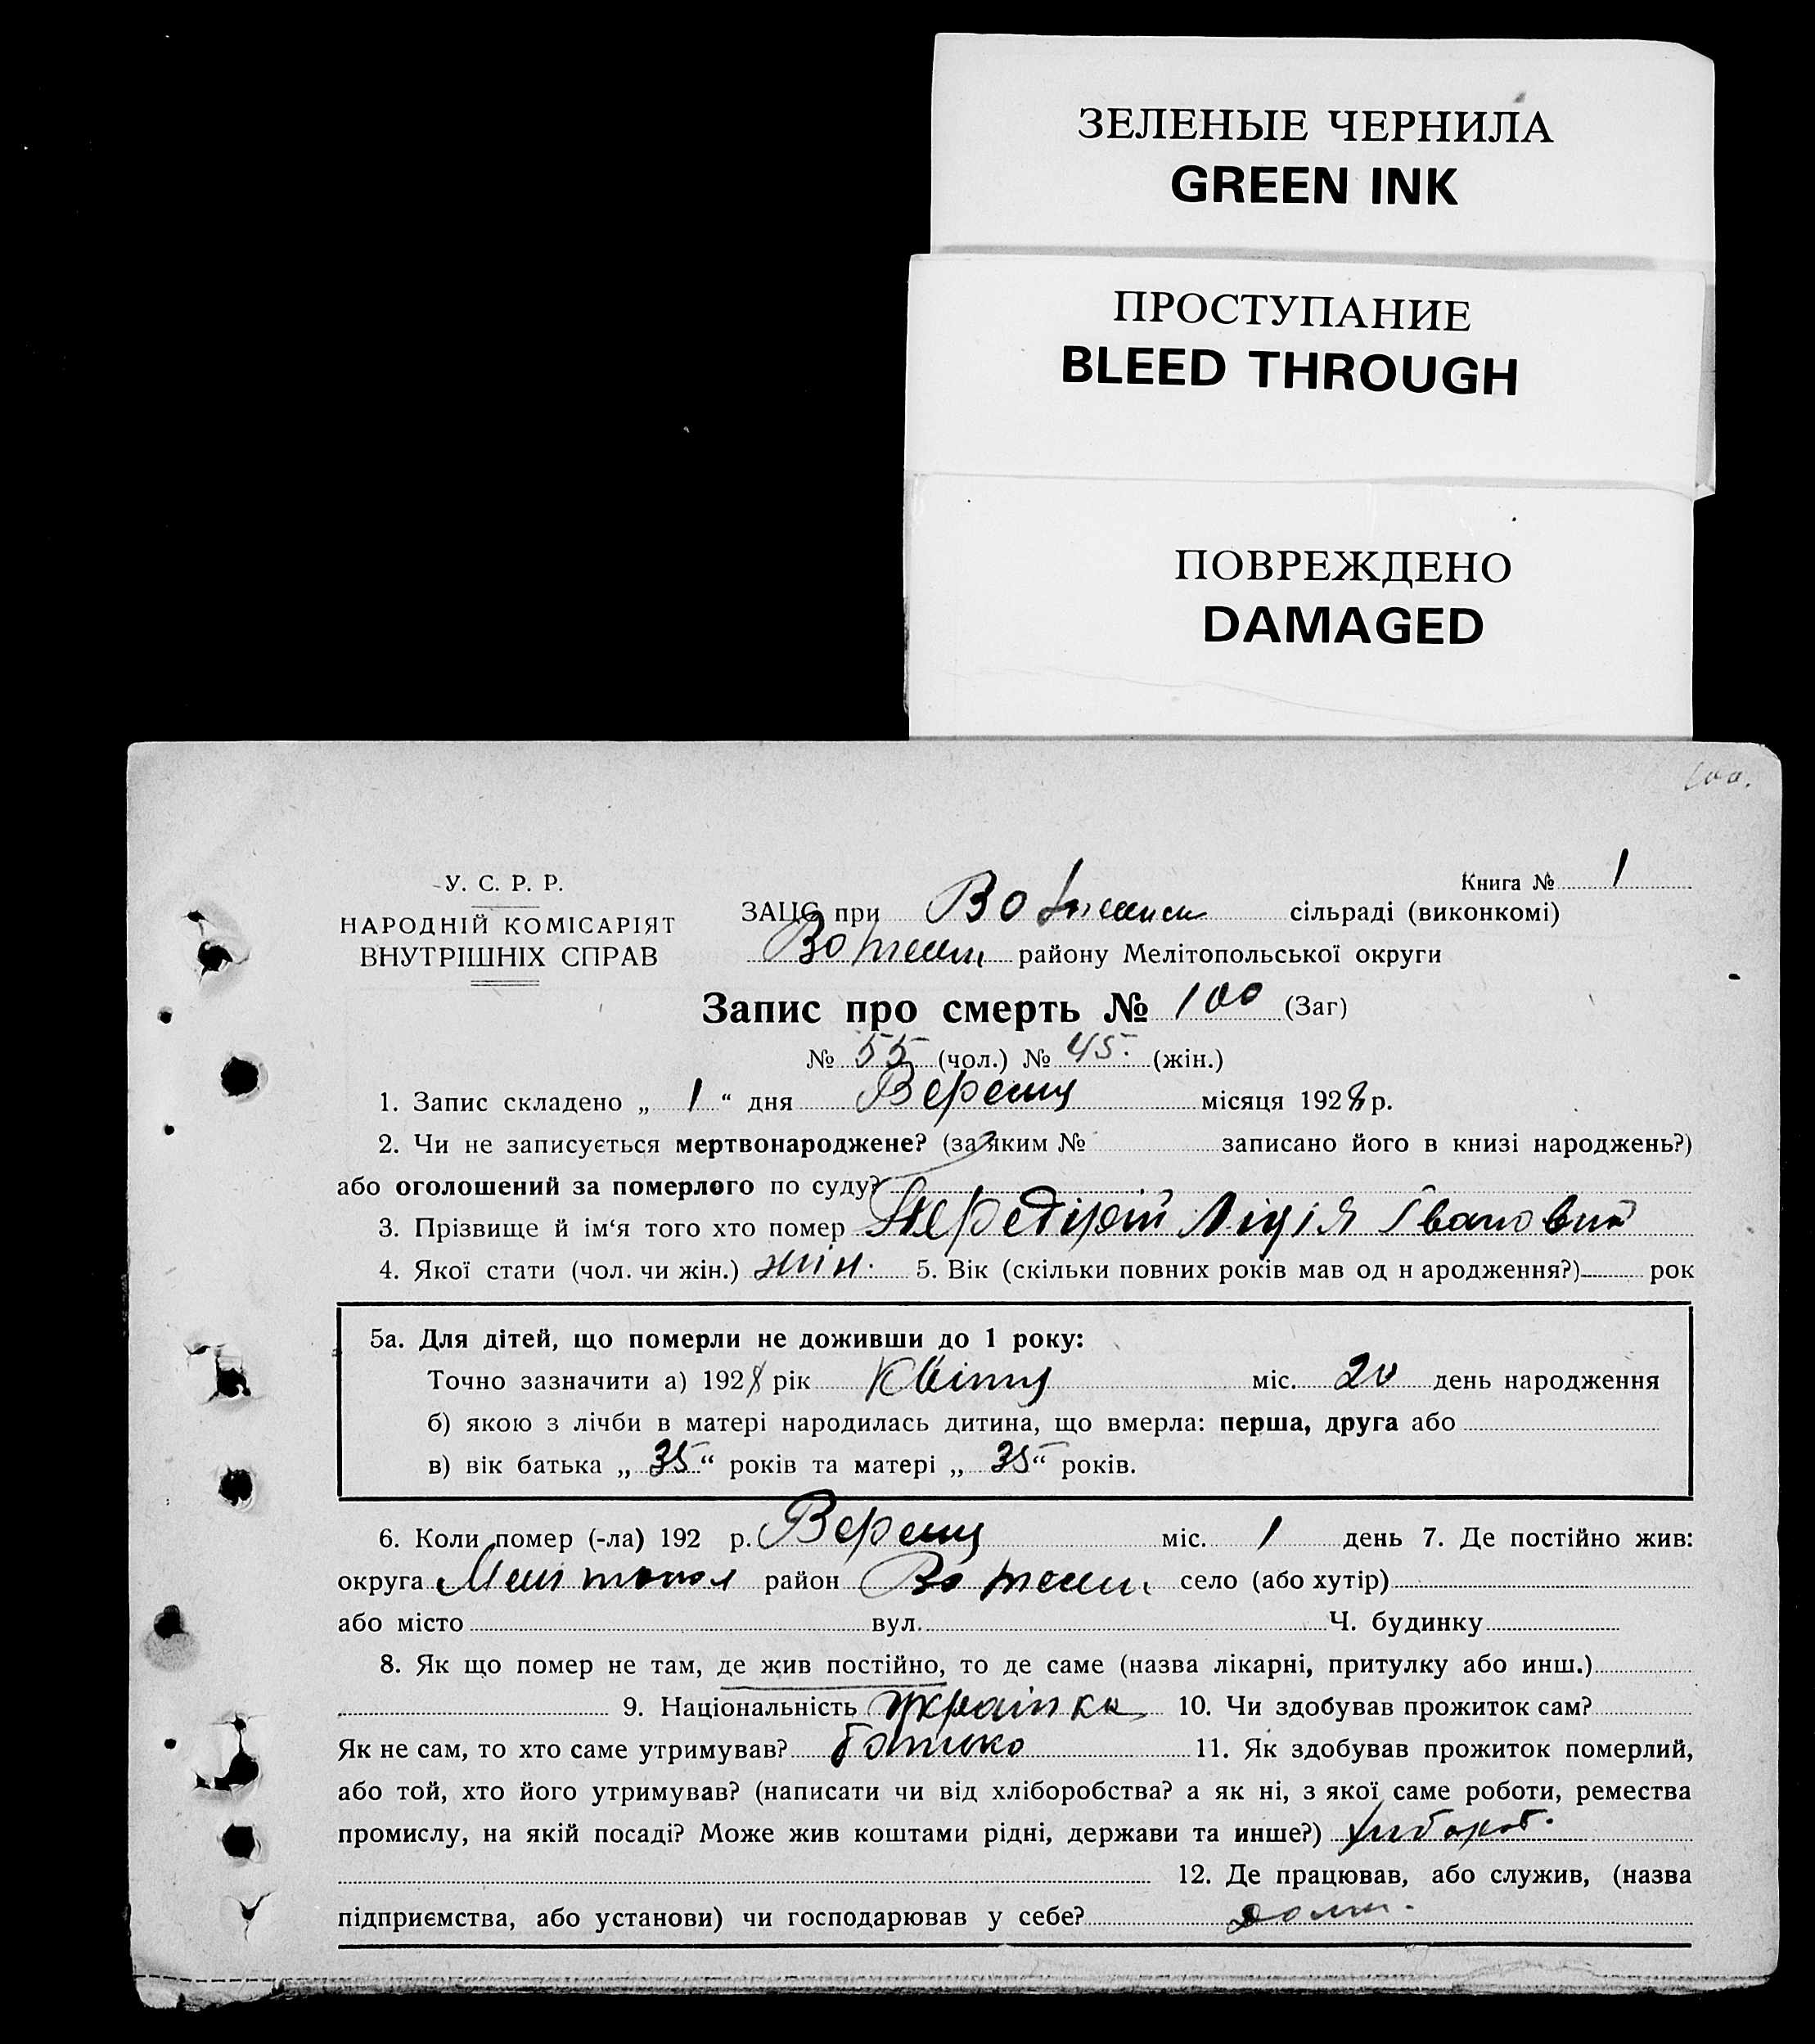 ЗЕЛЕНЫЕ ЧЕРНИЛА
GREEN INK
ПРОСТУПАНИЕ
BLEED THROUGH
ПОВРЕЖДЕНО
DAMAGED
100.
У. С. Р. Р.
НАРОДНІЙ КОМІСАРІЯТ
ВНУТРІШНІХ СПРАВ
Книга № 1
ЗАЦС при сільраді (виконкомі)
району Мелітопольської округи
Запис про смерть № 100 (Заг)
№ 55 (чол.) № 45. (жін.)
1. Запис складено „ 1 “ дня Вересня місяця 1928 р.
2. Чи не записується мертвонароджене? (за яким № записано його в книзі народжень?)
або оголошений за померлого по суду?
3. Прізвище й ім‘я того хто помер Лідія
4. Якої стати (чол. чи жін.) жін. 5. Вік (скільки повних років мав од н ародження?) рок
5а. Для дітей, що померли не доживши до 1 року:
Точно зазначити а) 1928 рік Квітня міс. 20 день народження
б) якою з лічби в матері народилась дитина, що вмерла: перша, друга або
в) вік батька „ 35 “ років та матері „ 35 “ років.
6. Коли помер (-ла) 192 р. Вересня міс. 1 день 7. Де постійно жив:
округа район село (або хутір)
або місто вул. Ч. будинку
8. Як що помер не там, де жив постійно, то де саме (назва лікарні, притулку або инш.)
9. Національність українка 10. Чи здобував прожиток сам?
Як не сам, то хто саме утримував? батько 11. Як здобував прожиток померлий,
або той, хто його утримував? (написати чи від хліборобства? а як ні, з якої саме роботи, ремества
промислу, на якій посаді? Може жив коштами рідні, держави та инше?) хлібороб.
12. Де працював, або служив, (назва
підприємства, або установи) чи господарював у себе?